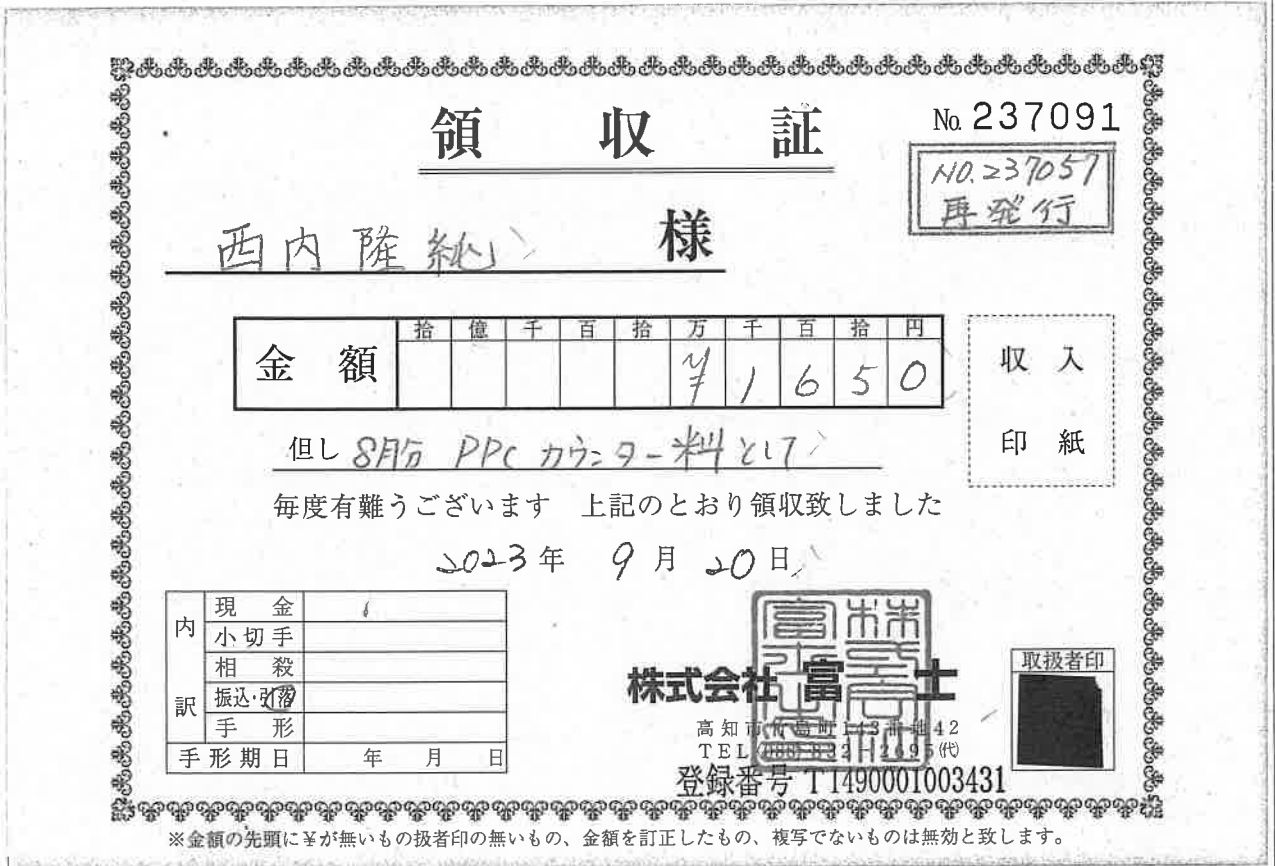 領収証
No. 237091
NO.237057
再発行
西内隆純 様
拾 億 千 百 拾 万 千 百 拾 円
金額 ¥1650
収入
印紙
但し 8月分 PPCカウンター料として
毎度有難うございます 上記のとおり領収致しました
2023年 9月 20日
内訳
現金
小切手
相殺
振込・引落
手形
手形期日 年 月 日
株式会社 富士
高知市竹島町143番地42
TEL(088)832-2695(代)
登録番号 T1490001003431
取扱者印
※金額の先頭に¥が無いもの扱者印の無いもの、金額を訂正したもの、複写でないものは無効と致します。